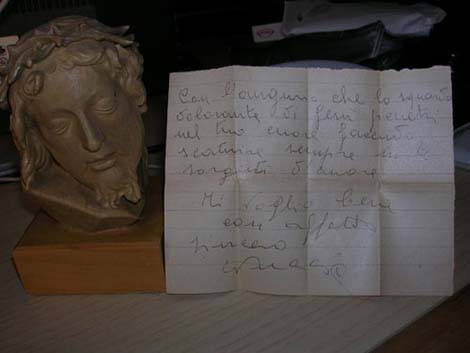 Con l'augurio che lo sguardo
dolorante di Gesù penetri
nel tuo cuore facendo
scaturire sempre
sorgenti d'amore
Ti voglio bene
con affetto
sincero